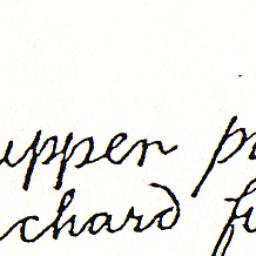 uppen p
chard fu